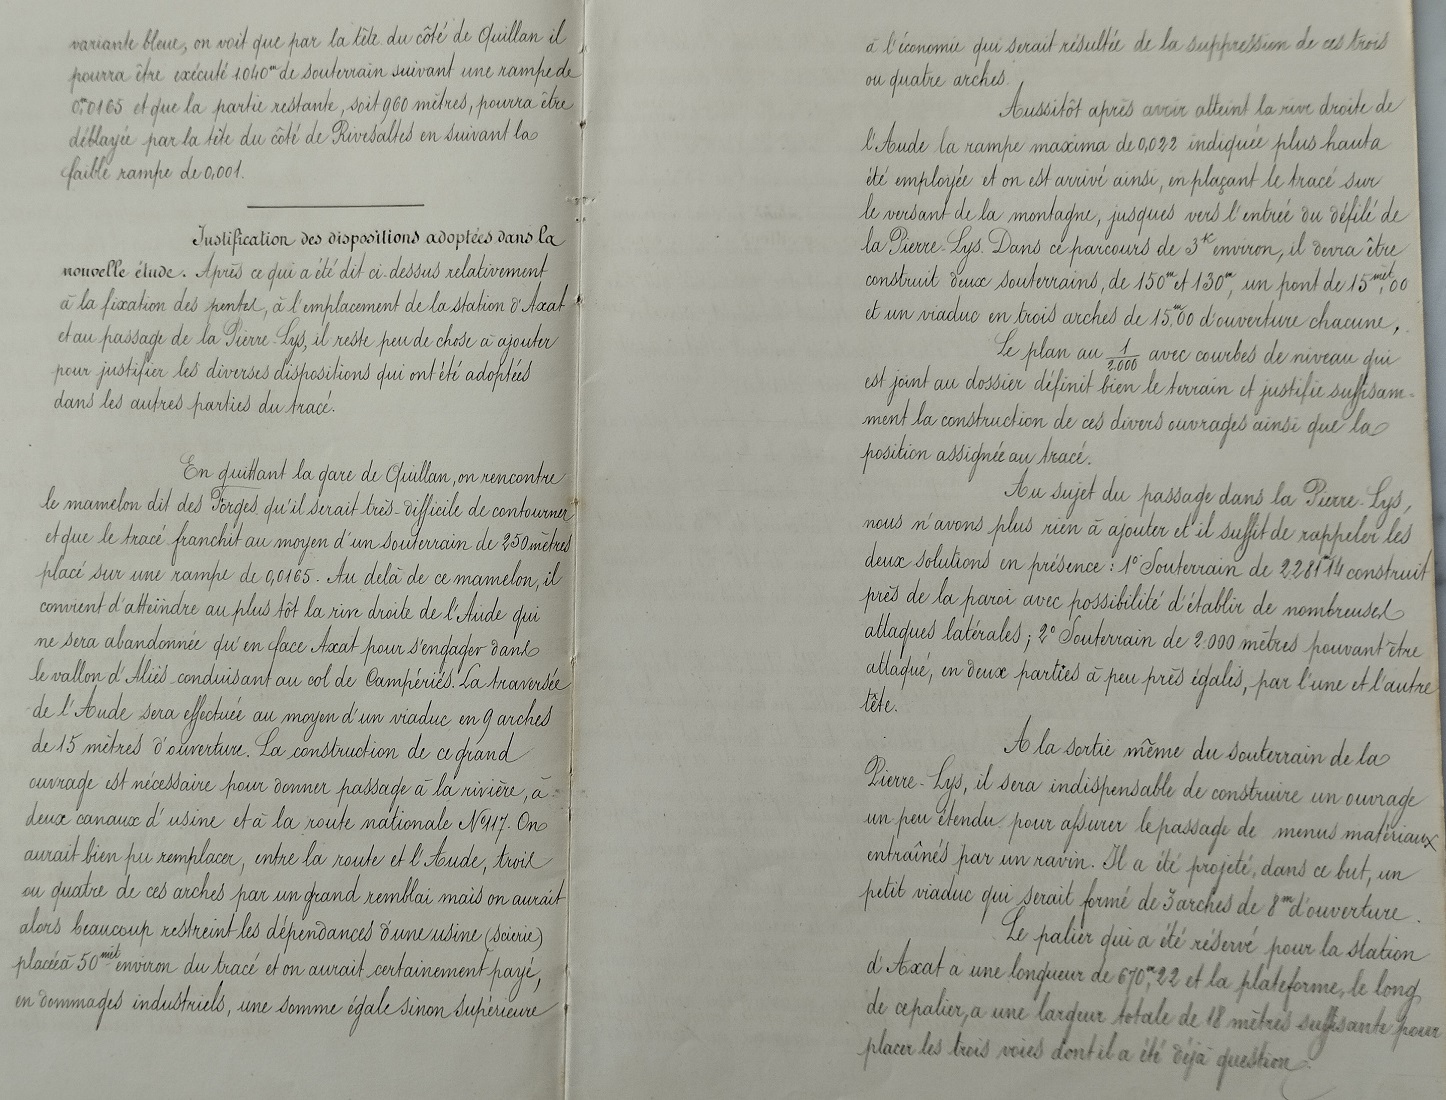 variante bleue, on voit que par la tête du côté de Quillan il
pourra être exécuté 1.040m de souterrain suivant une rampe de
0m,0165 et que la partie restante, soit 960 mètres, pourra être
déblayée par la tête du côté de Rivesaltes en suivant la
faible rampe de 0,001.
Justification des dispositions adoptées dans la
nouvelle étude. Après ce qui a été dit ci-dessus relativement
à la fixation des pentes, à l'emplacement de la station d'Axat
et au passage de la Pierre-Lys, il reste peu de chose à ajouter
pour justifier les diverses dispositions qui ont été adoptées
dans les autres parties du tracé.
En quittant la gare de Quillan, on rencontre
le mamelon dit des Forges qu'il serait très-difficile de contourner
et que le tracé franchit au moyen d'un souterrain de 250 mètres
placé sur une rampe de 0,0165. Au delà de ce mamelon, il
convient d'atteindre au plus tôt la rive droite de l'Aude qui
ne sera abandonnée qu'en face Axat pour s'engager dans
le vallon d'Aliès conduisant au col de Campériès. La traversée
de l'Aude sera effectuée au moyen d'un viaduc en 9 arches
de 15 mètres d'ouverture. La construction de ce grand
ouvrage est nécessaire pour donner passage à la rivière, à
deux canaux d'usine et à la route nationale N°117. On
aurait bien pu remplacer, entre la route et l'Aude, trois
ou quatre de ces arches par un grand remblai mais on aurait
alors beaucoup restreint les dépendances d'une usine (scierie)
placée à 50 mèt environ du tracé et on aurait certainement payé,
en dommages industriels, une somme égale sinon supérieure
à l'économie qui serait résultée de la suppression de ces trois
ou quatre arches.
Aussitôt après avoir atteint la rive droite de
l'Aude la rampe maxima de 0,022 indiquée plus haut a
été employée et on est arrivé ainsi, en plaçant le tracé sur
le versant de la montagne, jusques vers l'entrée du défilé de
la Pierre-Lys. Dans ce parcours de 3k environ, il devra être
construit deux souterrains, de 150m et 130m, un pont de 15mèt,00
et un viaduc en trois arches de 15m,00 d'ouverture chacune,
Le plan au 1/2.000 avec courbes de niveau qui
est joint au dossier définit bien le terrain et justifie suffisam-
ment la construction de ces divers ouvrages ainsi que la
position assignée au tracé.
Au sujet du passage dans la Pierre-Lys,
nous n'avons plus rien à ajouter et il suffit de rappeler les
deux solutions en présence : 1° Souterrain de 2281m14 construit
près de la paroi avec possibilité d'établir de nombreuses
attaques latérales ; 2° Souterrain de 2.000 mètres pouvant être
attaqué, en deux parties à peu près égales, par l'une et l'autre
tête.
A la sortie même du souterrain de la
Pierre-Lys, il sera indispensable de construire un ouvrage
un peu étendu pour assurer le passage de menus matériaux
entraînés par un ravin. Il a été projeté, dans ce but, un
petit viaduc qui serait formé de 3 arches de 8m d'ouverture.
Le palier qui a été réservé pour la station
d'Axat a une longueur de 670m,22 et la plateforme, le long
de ce palier, a une largeur totale de 18 mètres suffisante pour
placer les trois voies dont il a été déjà question.